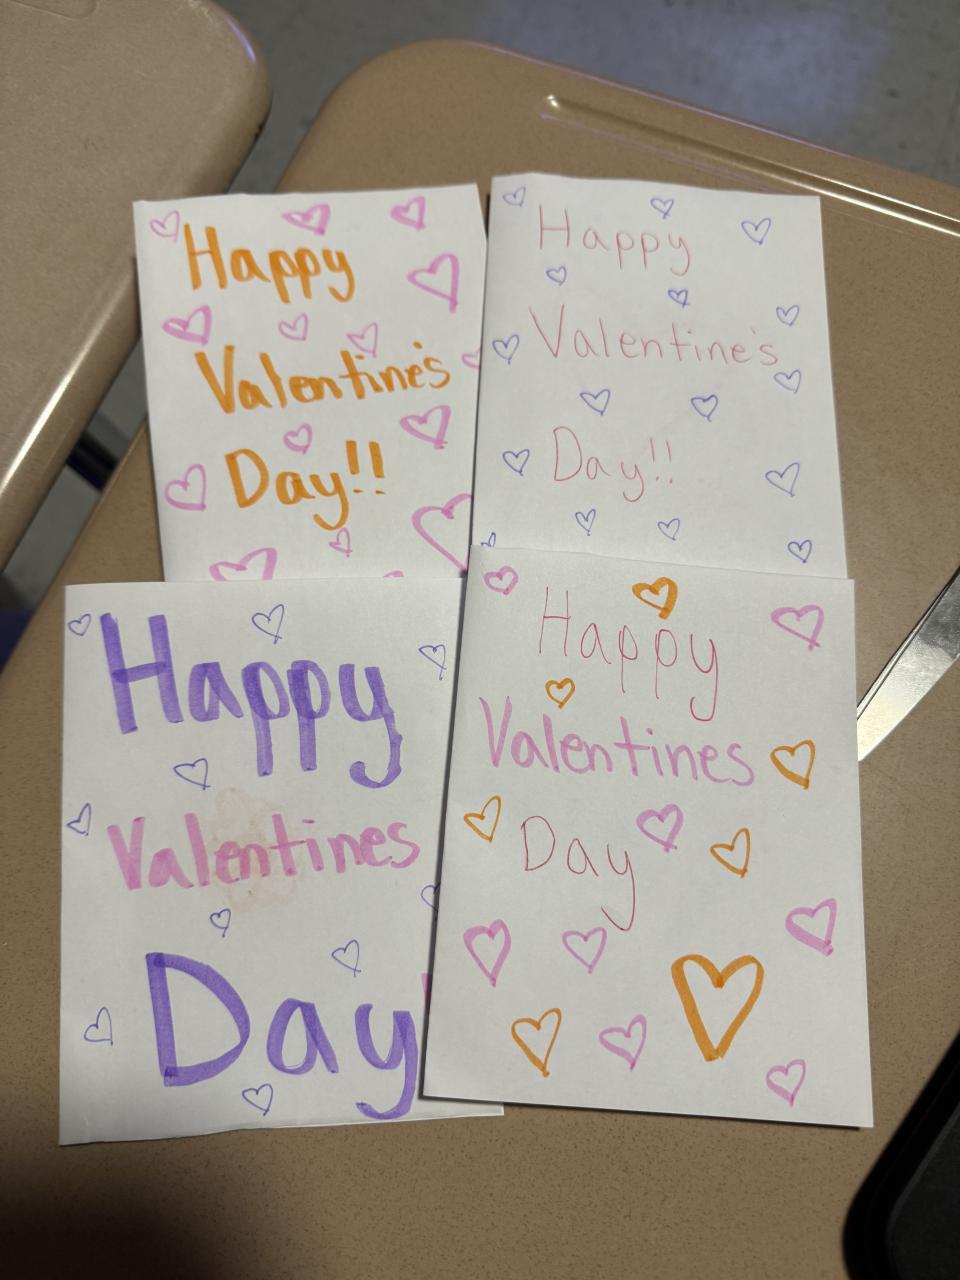 Happy
Valentine's
Day!!
Happy
Valentine's
Day!!
Happy
Valentines
Day
Happy
Valentines
Day